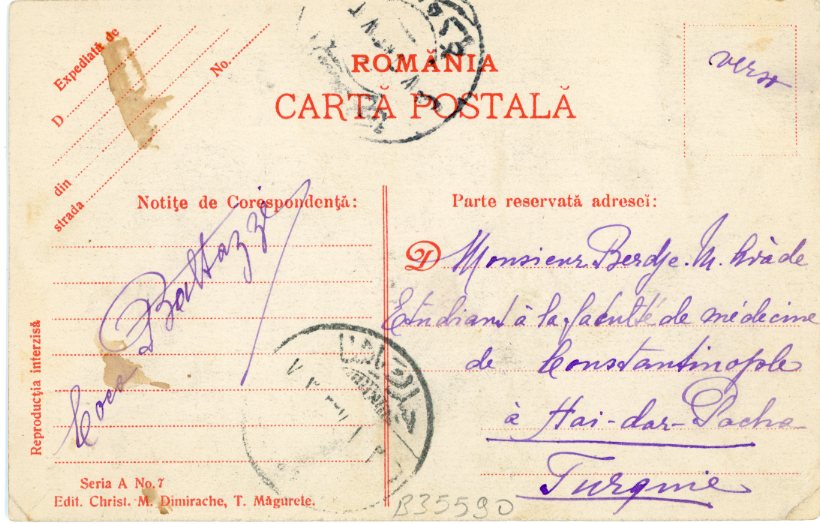 Expediată de
D
No.
din
strada
ROMÂNIA
CARTĂ POSTALĂ
verso
Notițe de Corespondență:
Coco Baltazzi
Parte reservată adresei:
D Monsieur Berdje. M.
Etudiant à la faculté de médecine
de Constantinople
à Haï-dar-Pacha
Turquie
Reproducția interzisă
Seria A No. 7
Edit. Christ. M. Dimirache, T. Măgurele.
B35590